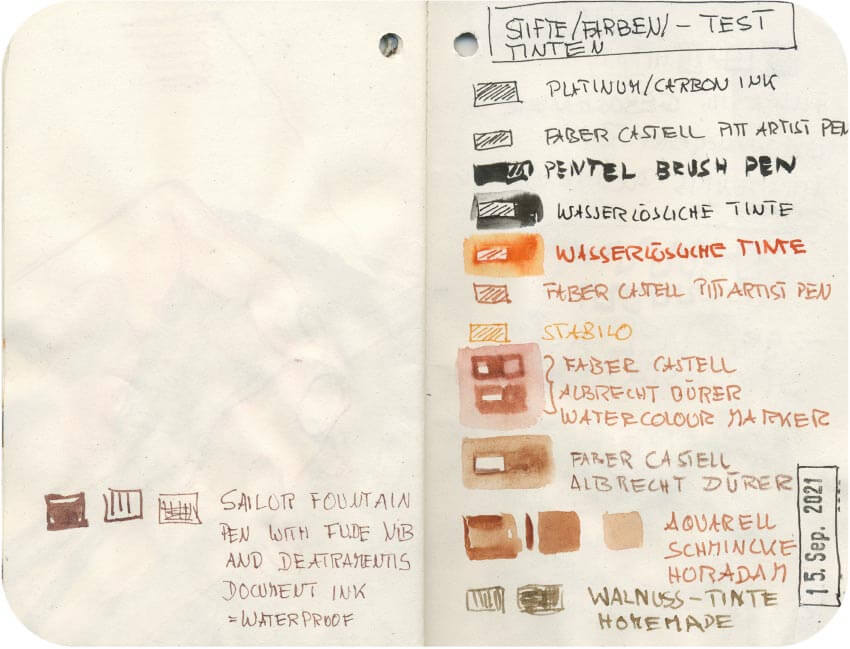 SAILOR FOUNTAIN
PEN WITH FUDE NIB
AND DEATRAMENTIS
DOCUMENT INK
=WATERPROOF
STIFTE/FARBEN/-TEST
TINTEN
PLATINUM/CARBON INK
FABER CASTELL PITT ARTIST PEN
PENTEL BRUSH PEN
WASSERLÖSLICHE TINTE
WASSERLÖSLICHE TINTE
FABER CASTELL PITT ARTIST PEN
STABILO
FABER CASTELL
ALBRECHT DÜRER
WATERCOLOUR MARKER
FABER CASTELL
ALBRECHT DÜRER
AQUARELL
SCHMINCKE
HORADAM
15. Sep. 2021
WALNUSS-TINTE
HOMEMADE